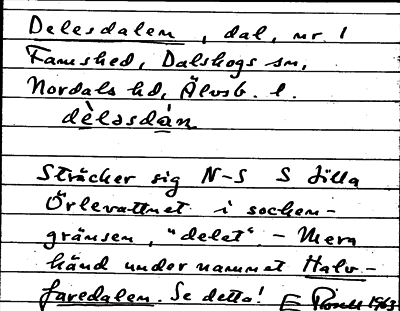 Delesdalem, dal, nr. 1
Famshed, Dalskogs sn,
Nordals hd, Älvsb. l.
dèlǝsdán
Sträcker sig N-S S Lilla
Örlevattnet i socken-
gränsen, "delet". - Mera
känd under namnet Halv-
faredalen. Se detta! E 1963